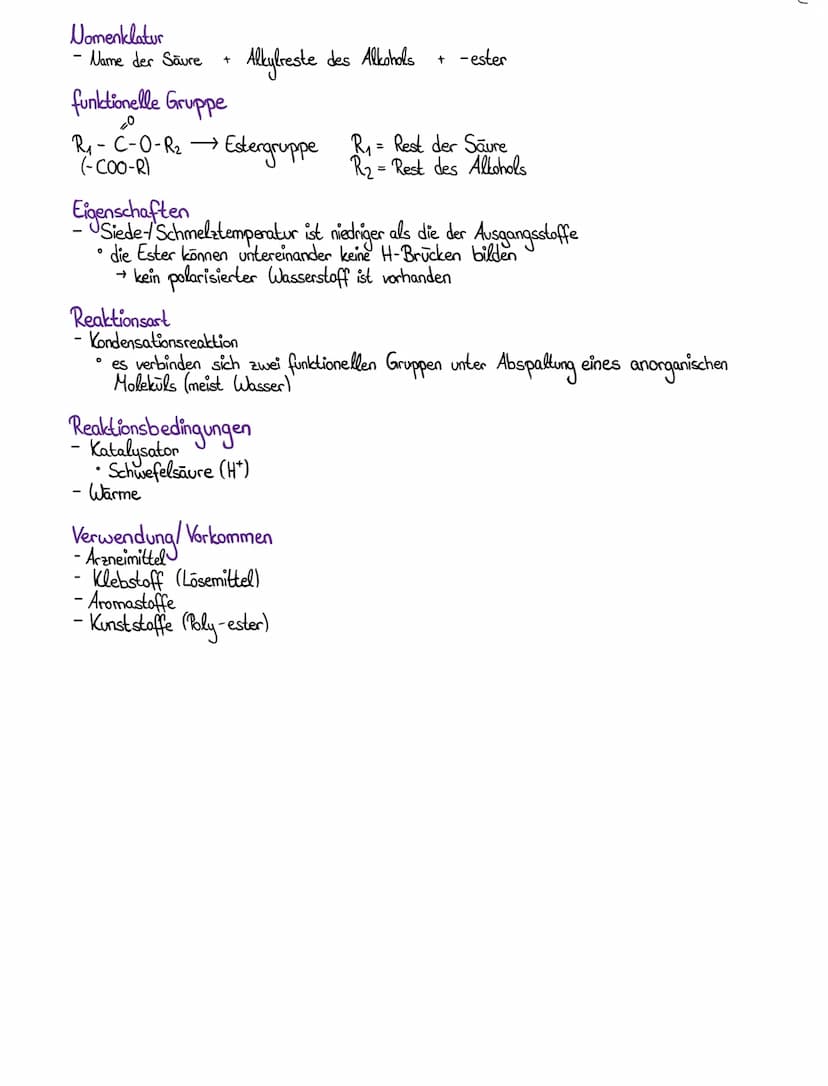 Nomenklatur
- Name der Säure + Alkylreste des Alkohols + -ester
funktionelle Gruppe
O
R₁ - C-O-R₂ → Estergruppe R₁ = Rest der Säure
(-COO-R) R₂ = Rest des Alkohols
Eigenschaften
- Siede-/Schmelztemperatur ist niedriger als die der Ausgangsstoffe
° die Ester können untereinander keine H-Brücken bilden
→ kein polarisierter Wasserstoff ist vorhanden
Reaktionsart
- Kondensationsreaktion
° es verbinden sich zwei funktionellen Gruppen unter Abspaltung eines anorganischen
Moleküls (meist Wasser)
Reaktionsbedingungen
- Katalysator
• Schwefelsäure (H⁺)
- Wärme
Verwendung/Vorkommen
- Arzneimittel
- Klebstoff (Lösemittel)
- Aromastoffe
- Kunststoffe (Poly-ester)